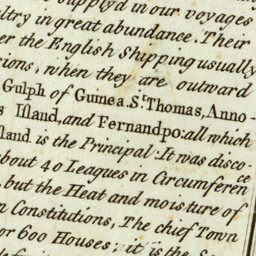 supply'd in our voyages
ltry in great abundance. Their
er the English Shipping usually
sions, when they are outward
Gulph of Guinea. St. Thomas, Anno-
s Island, and Fernandpo: all which
sland is the Principal: It was disco-
about 40 Leagues in Circumference
but the Heat and moisture of
n Constitutions, The chief Town
or 600 Houses; it is the